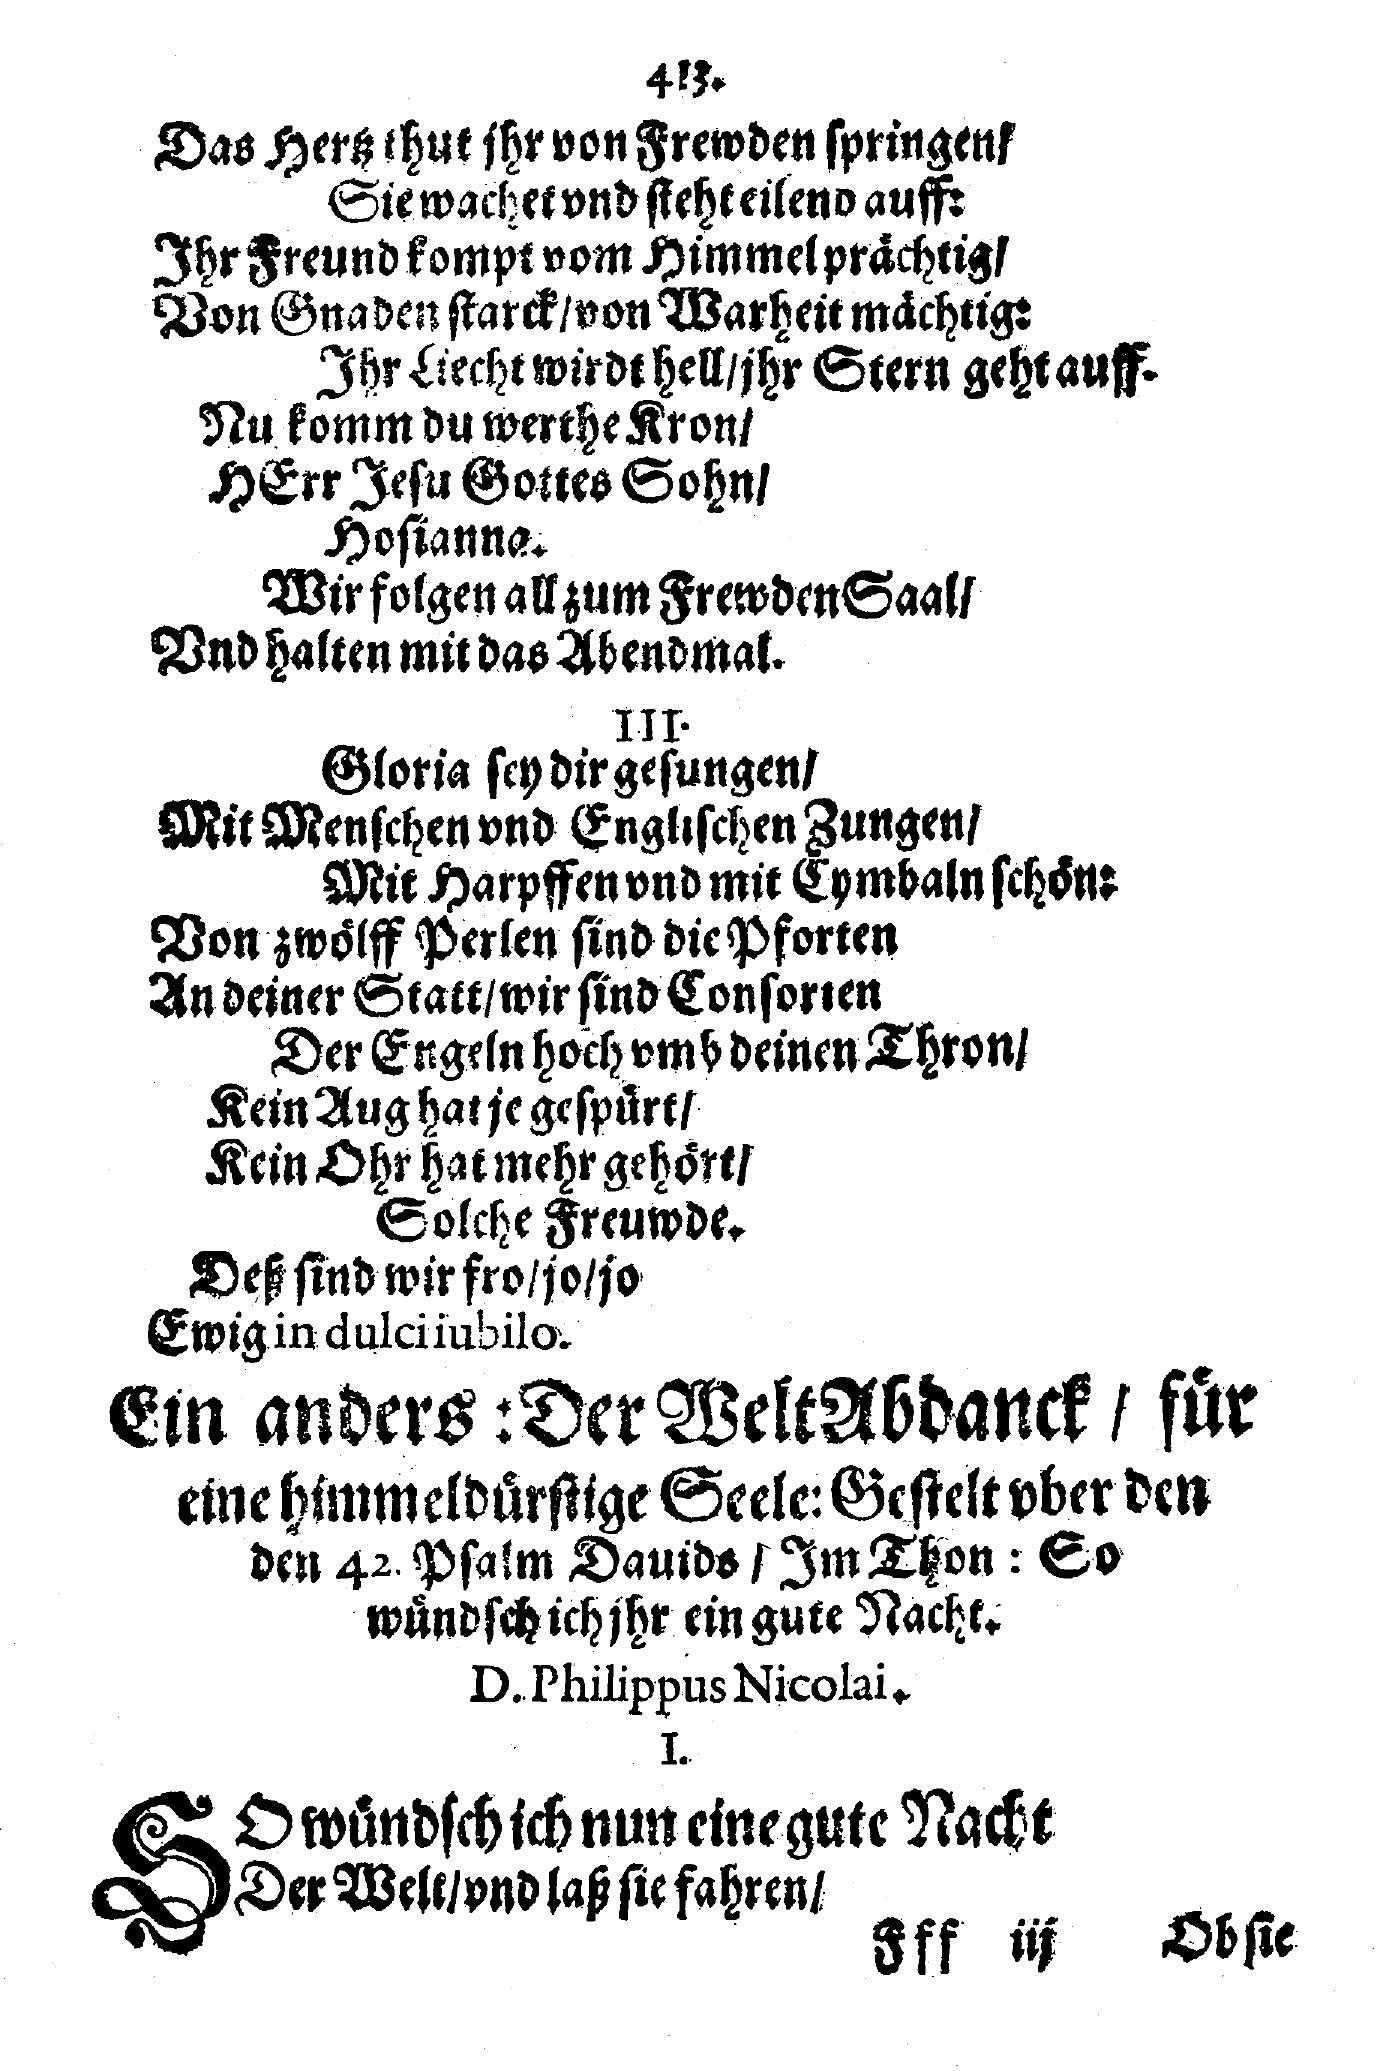 413.
Das Hertz thut jhr von Frewden springen/
Sie wachet vnd steht eilend auff:
Ihr Freund kompt vom Himmel prächtig/
Von Gnaden starck/von Warheit mächtig:
Ihr Liecht wirdt hell/jhr Stern geht auff.
Nu komm du werthe Kron/
HErr Jesu Gottes Sohn/
Hosianna.
Wir folgen all zum Frewden Saal/
Vnd halten mit das Abendmal.
III.
Gloria sey dir gesungen/
Mit Menschen vnd Englischen Zungen/
Mit Harpffen vnd mit Cymbaln schön:
Von zwölff Perlen sind die Pforten
An deiner Statt/wir sind Consorten
Der Engeln hoch vmb deinen Thron/
Kein Aug hat je gespürt/
Kein Ohr hat mehr gehört/
Solche Freuwde.
Deß sind wir fro/jo/jo
Ewig in dulci iubilo.
Ein anders : Der Welt Abdanck / für
eine himmeldürstige Seele: Gestelt vber den
den 42. Psalm Dauids / Im Thon : So
wündsch ich jhr ein gute Nacht.
D. Philippus Nicolai.
I.
SO wündsch ich nun eine gute Nacht
Der Welt/vnd laß sie fahren/
Fff iij Ob sie